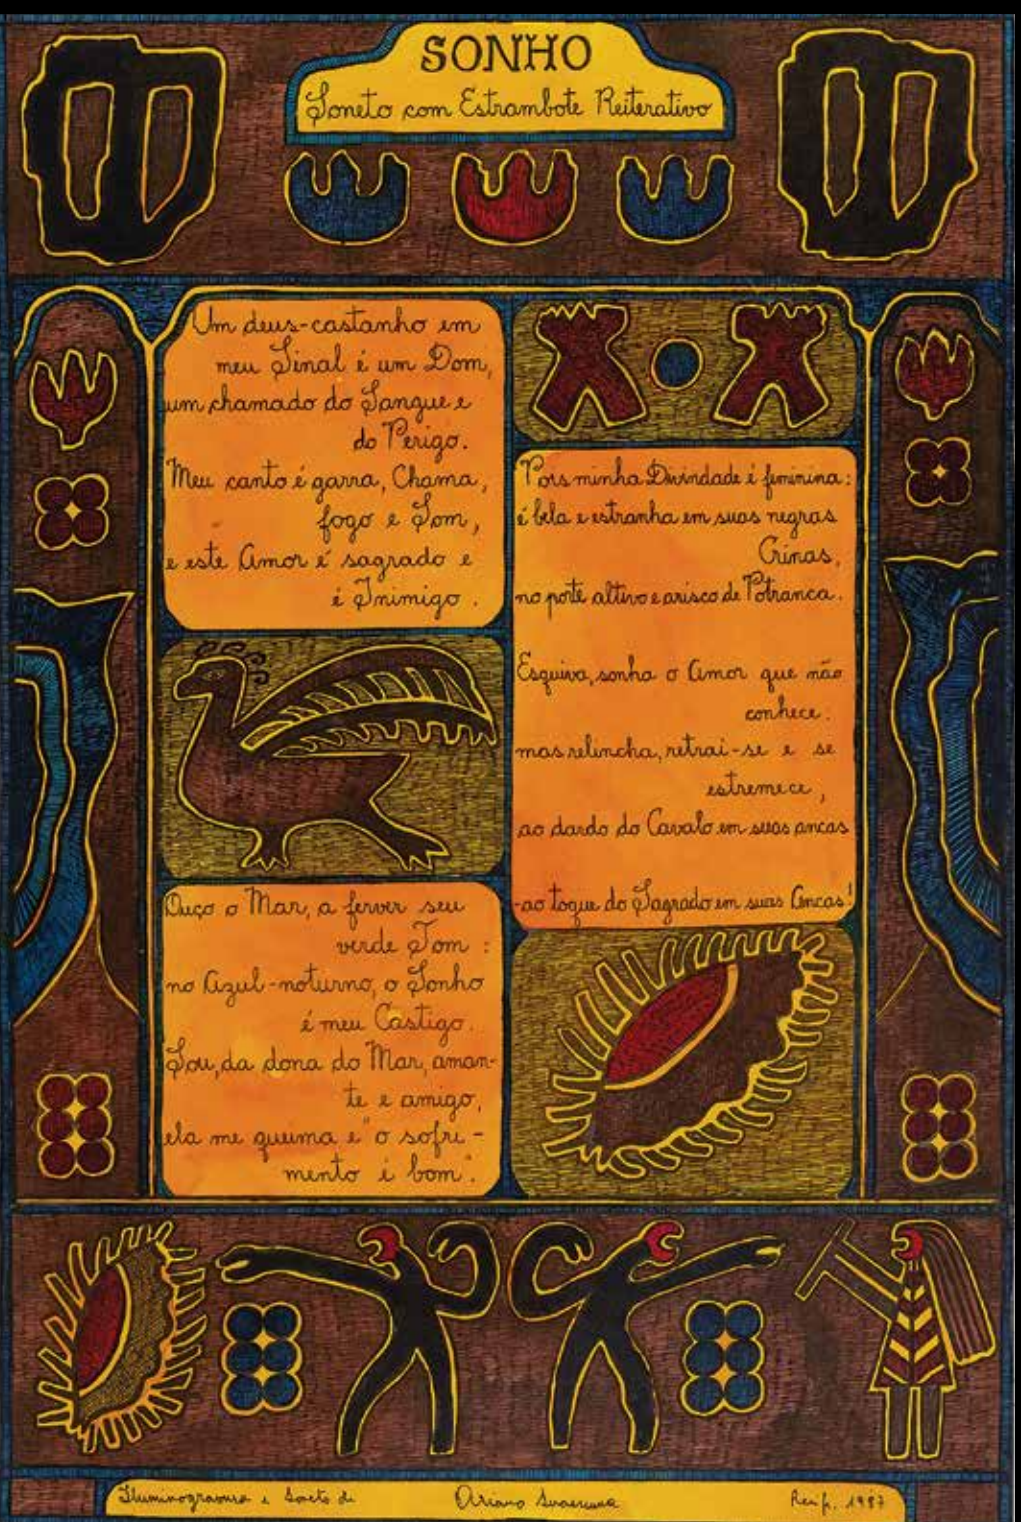 SONHO
Soneto com Estrambote Reiterativo
Um deus-castanho em
meu Sinal é um Dom,
um chamado do Sangue e
do Perigo.
Meu canto é garra, Chama,
fogo e Som,
e este Amor é sagrado e
é Inimigo.
Ouço o Mar, a ferver seu
verde Tom:
no Azul-noturno, o Sonho
é meu Castigo.
Sou, da dona do Mar, aman-
te e amigo,
ela me queima e "o sofri-
mento é bom".
Pois minha Divindade é feminina:
é bela e estranha em suas negras
Crinas,
no porte altivo e arisco de Potranca.
Esquiva, sonha o Amor que não
conhece:
mas relincha, retrai-se e se
estremece,
ao dardo do Cavalo em suas ancas
-ao toque do Sagrado em suas Ancas!
Iluminogravura e Soneto de Ariano Suassuna Recife, 1987